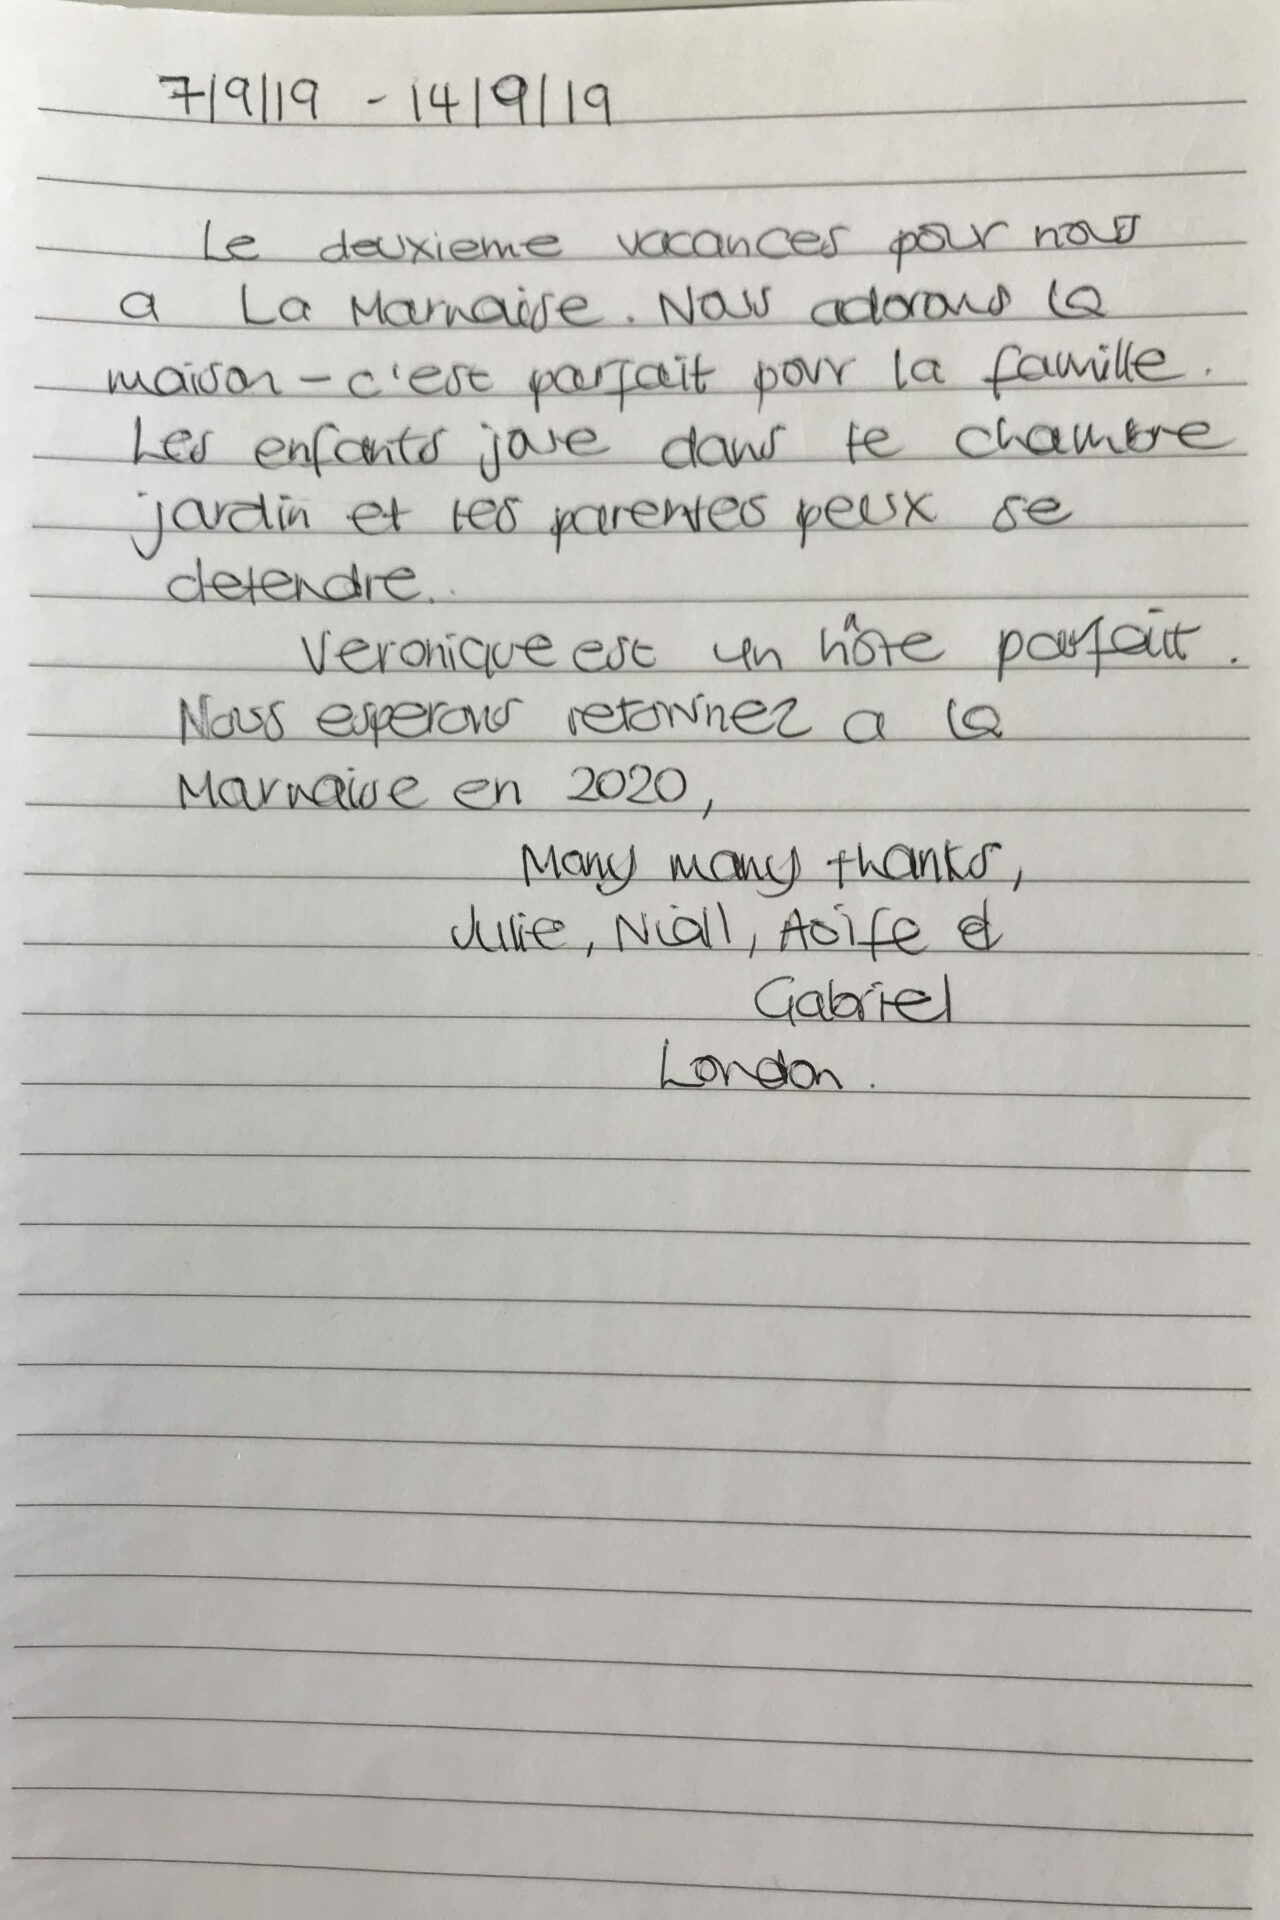 7/9/19 - 14/9/19
Le deuxieme vacances pour nous
a La Marnaise. Nous adorons la
maison - c'est parfait pour la famille.
Les enfants joue dans le chambre
jardin et les parentes peux se
detendre.
Veronique est un hôte parfait.
Nous esperons retournez a la
Marnaise en 2020,
Many many thanks,
Julie, Niall, Aoife et
Gabriel
London.